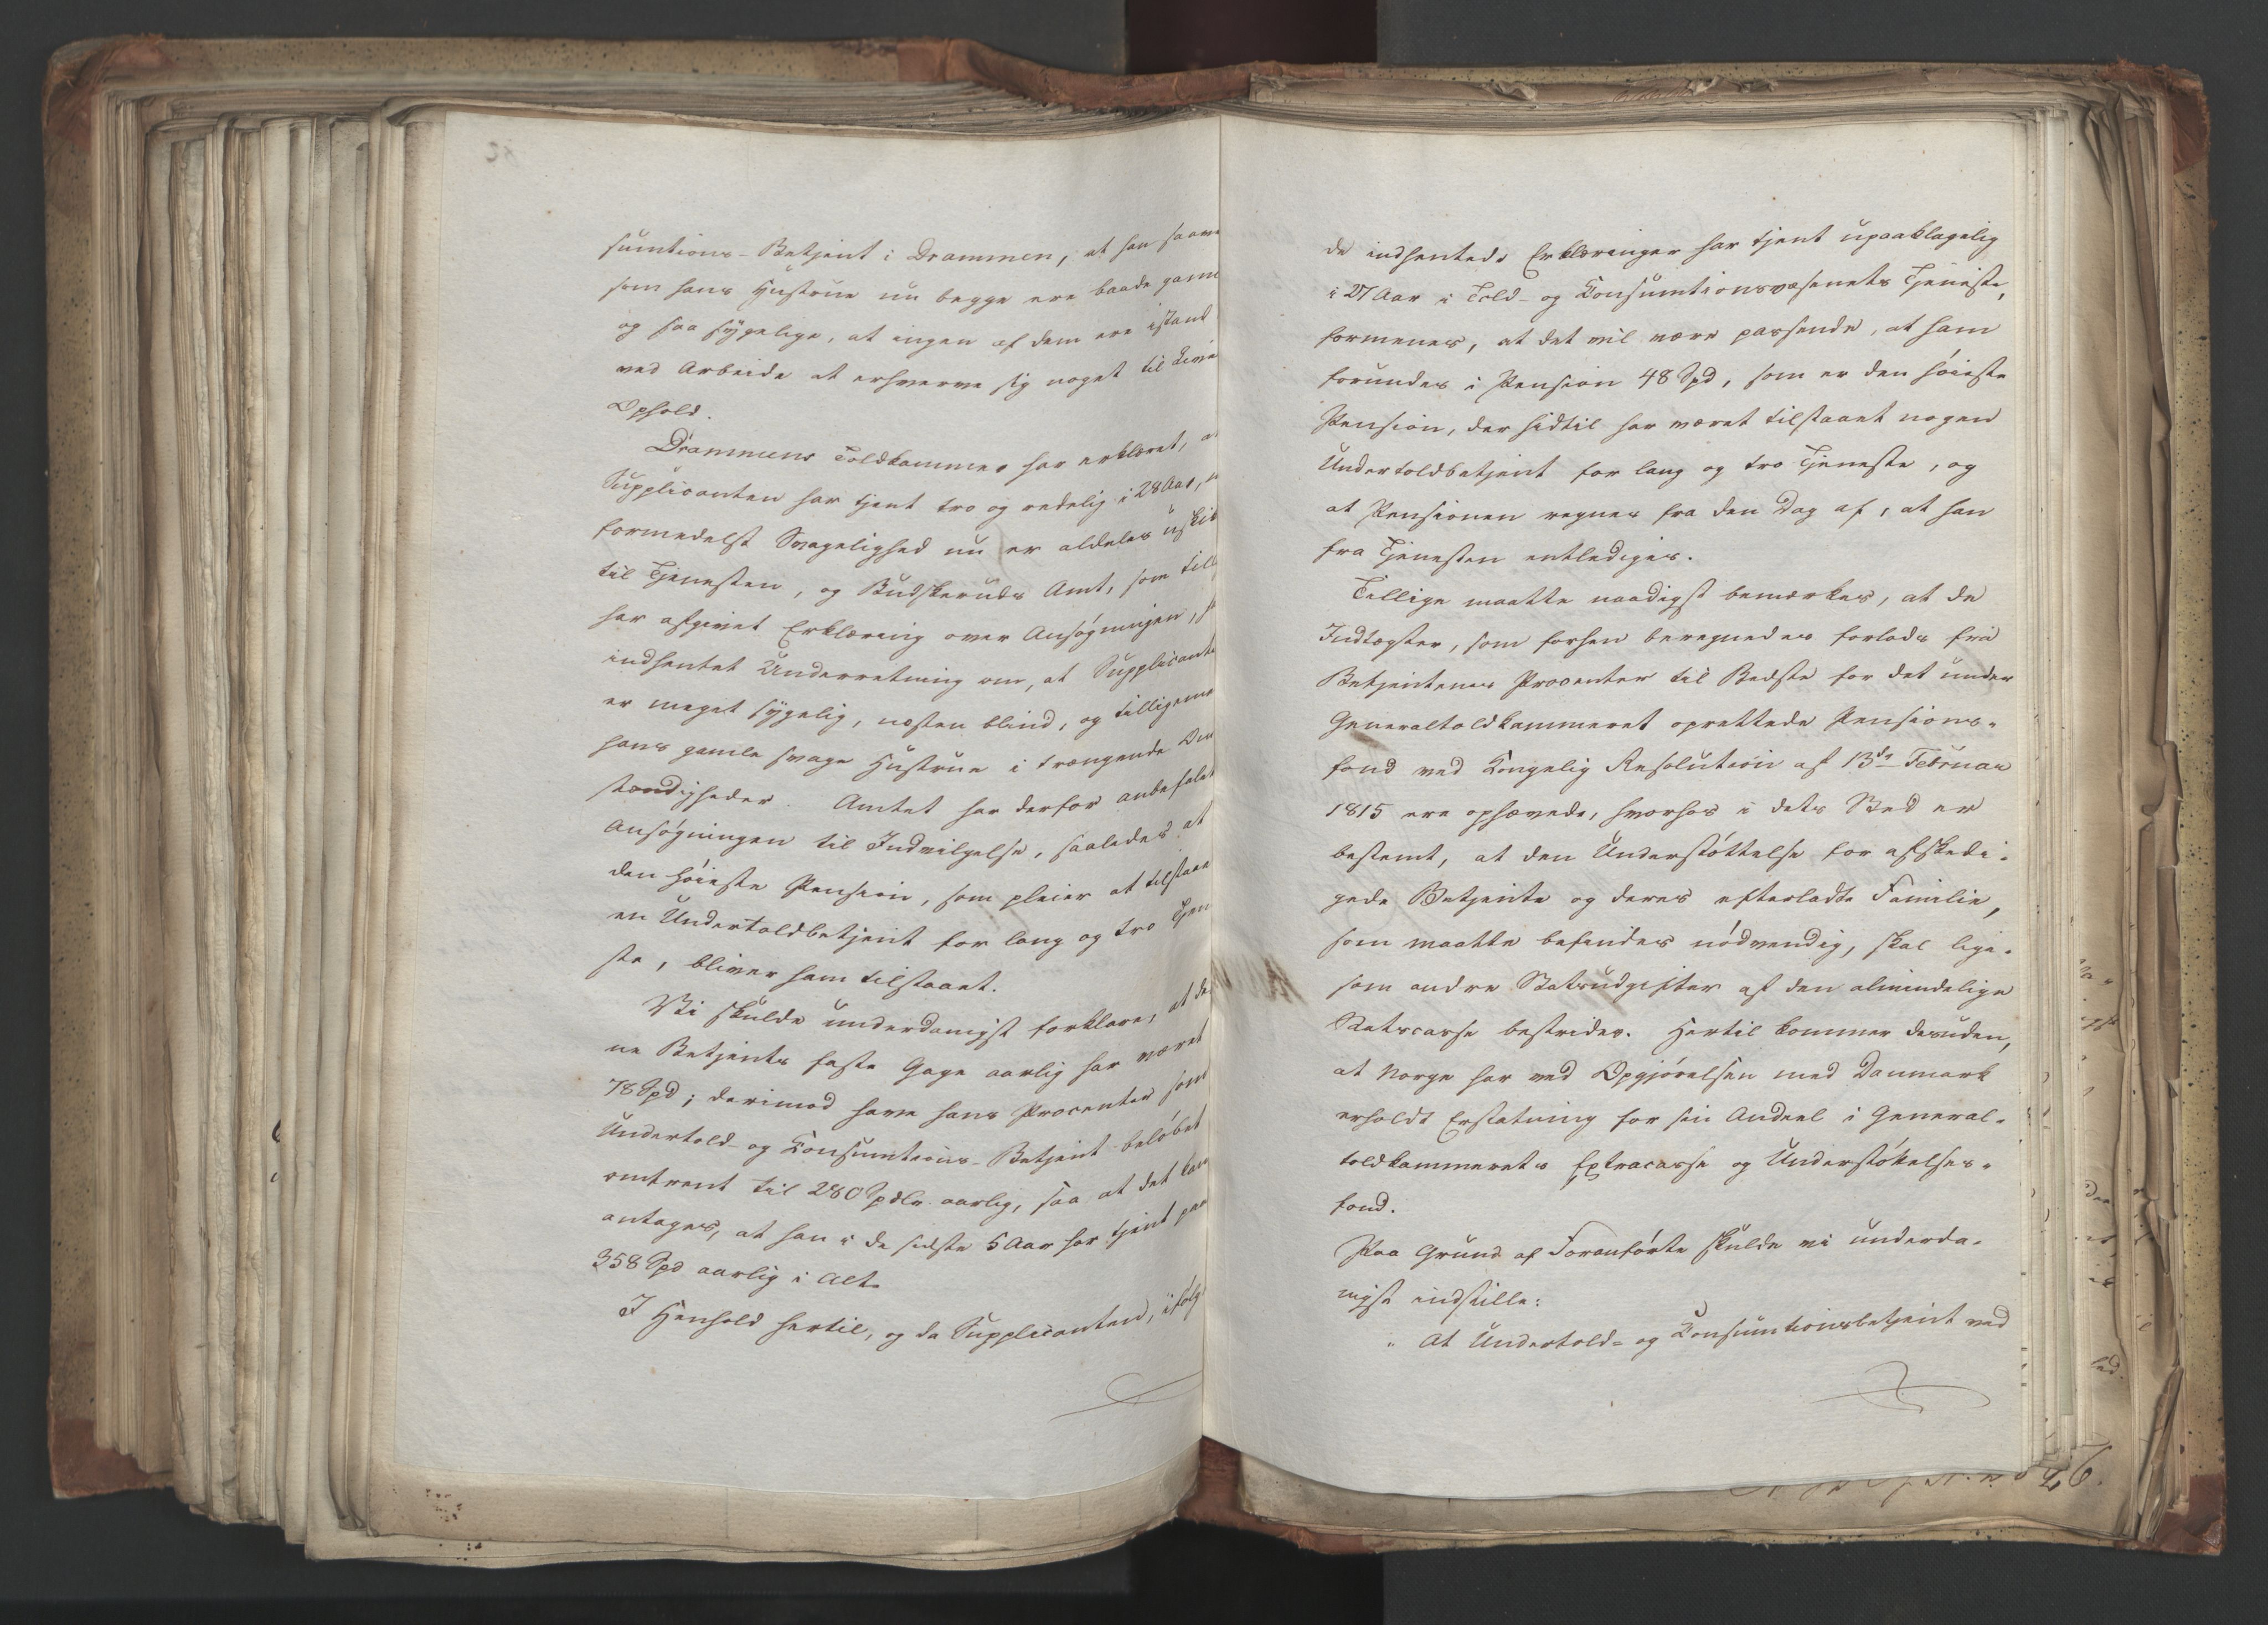 sumtions-Betjent i Drammen, at han saave
som hans Hustrue nu begge ere baade gaml
og saa sygelige, at ingen af dem ere istand
ved Arbeide at erhverve sig noget til Liv
Ophold.
Drammens Toldkammer har erklæret, a
Supplicanten har tjent tro og redelig i 28 Aar, 
formedelst Svagelighed nu er aldeles uskik
til Tjenesten, og Budskeruds Amt, som till
har afgivet Erklæring over Ansøgningen, h
indhentet Underretning om, at Supplicante
er meget sygelig, næsten blind, og tilligeme
hans gamle svage Hustrue i trængende Om
stændigheder. Amtet har derfor anbefalet
Ansøgningen til Indvilgelse, saaledes at
den høieste Pension, som pleier at tilstaae
en Undertoldbetjent for lang og tro Tjen
ste, bliver ham tilstaaet.
Vi skulde underdanigst forklare, at den
ne Betjents faste Gage aarlig har været
78 Spd; derimod have hans Procenter som
Undertold- og Konsumtions-Betjent beløbet
omtrent til 280 Spdlr. aarlig, saa at det kan
antages, at han i de sidste 5 Aar har tjent paa
358 Spd aarlig i Alt.
I Henhold hertil, og da Supplicanten, ifølg
de indhentede Erklæringer har tjent upaaklagelig
i 27 Aar i Told- og Konsumtionsvæsenets Tjeneste,
formenes, at det vil være passende, at ham
forundes i Pension 48 Spd, som er den høieste
Pension, der hidtil har været tilstaaet nogen
Undertoldbetjent for lang og tro Tjeneste, og
at Pensionen regnes fra den Dag af, at han
fra Tjenesten entlediges.
Tillige maatte naadigst bemærkes, at de
Indtægter, som forhen beregnedes forlods fra
Betjentenes Procenter til Bedste for det under
Generaltoldkammeret oprettede Pensions-
fond ved Kongelig Resolution af 13de Februar
1815 ere ophævede, hvorhos i dets Sted er
bestemt, at den Understøttelse for afskedi-
gede Betjente og deres efterladte Familie,
som maatte befindes nødvendig, skal lige-
som andre Statsudgifter af den almindelige
Statscasse bestrides. Hertil kommer desuden,
at Norge har ved Opgjørelsen med Danmark
erholdt Erstatning for sin Andeel i General-
toldkammerets Extracasse og Understøttelses-
fond.
Paa Grund af Foranførte skulde vi underda-
nigst indstille:
" At Undertold- og Konsumtionsbetjent ved